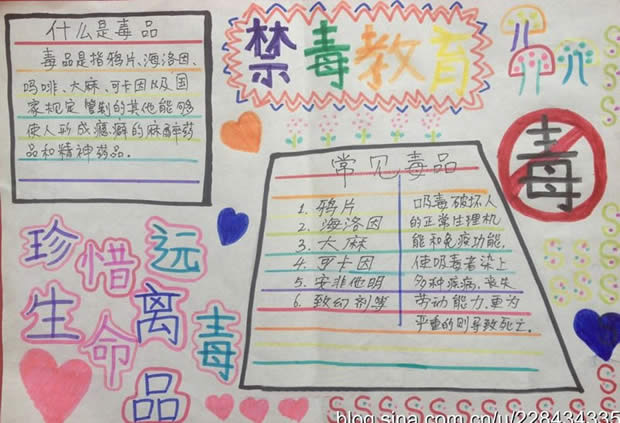 什么是毒品
毒品是指鸦片、海洛因、
吗啡、大麻、可卡因以及国
家规定管制的其他能够
使人形成瘾癖的麻醉药
品和精神药品.
禁毒教育
毒
常见毒品
1. 鸦片
2. 海洛因
3. 大麻
4. 可卡因
5. 安非他明
6. 致幻剂等
吸毒破坏人
的正常生理机
能和免疫功能,
使吸毒者染上
多种疾病,丧失
劳动能力,更为
严重的则导致死亡.
珍惜
生命
远离
毒品
blog.sina.com.cn/u/228434335